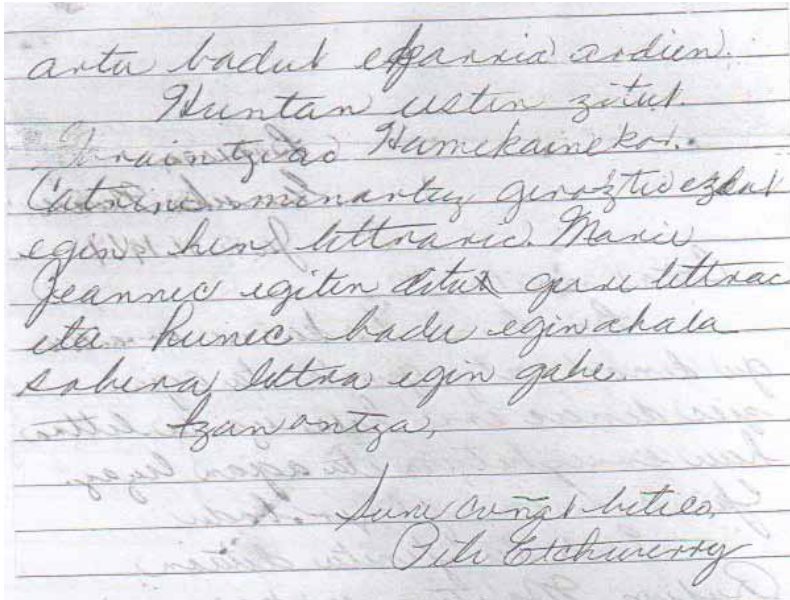 artu badut esparria ardien.
Huntan usten zitut.
Goraintziac Hamekaineko.
Catrine minartuz geroztic ez dut
egin hen lettraric. Marie
Jeannec egiten ditu gure lettrac
eta hunec badu egin ahala
sobera lettra egin gabe.
Izan ontza,
Sure cuñat betico,
Pete Etcheverry